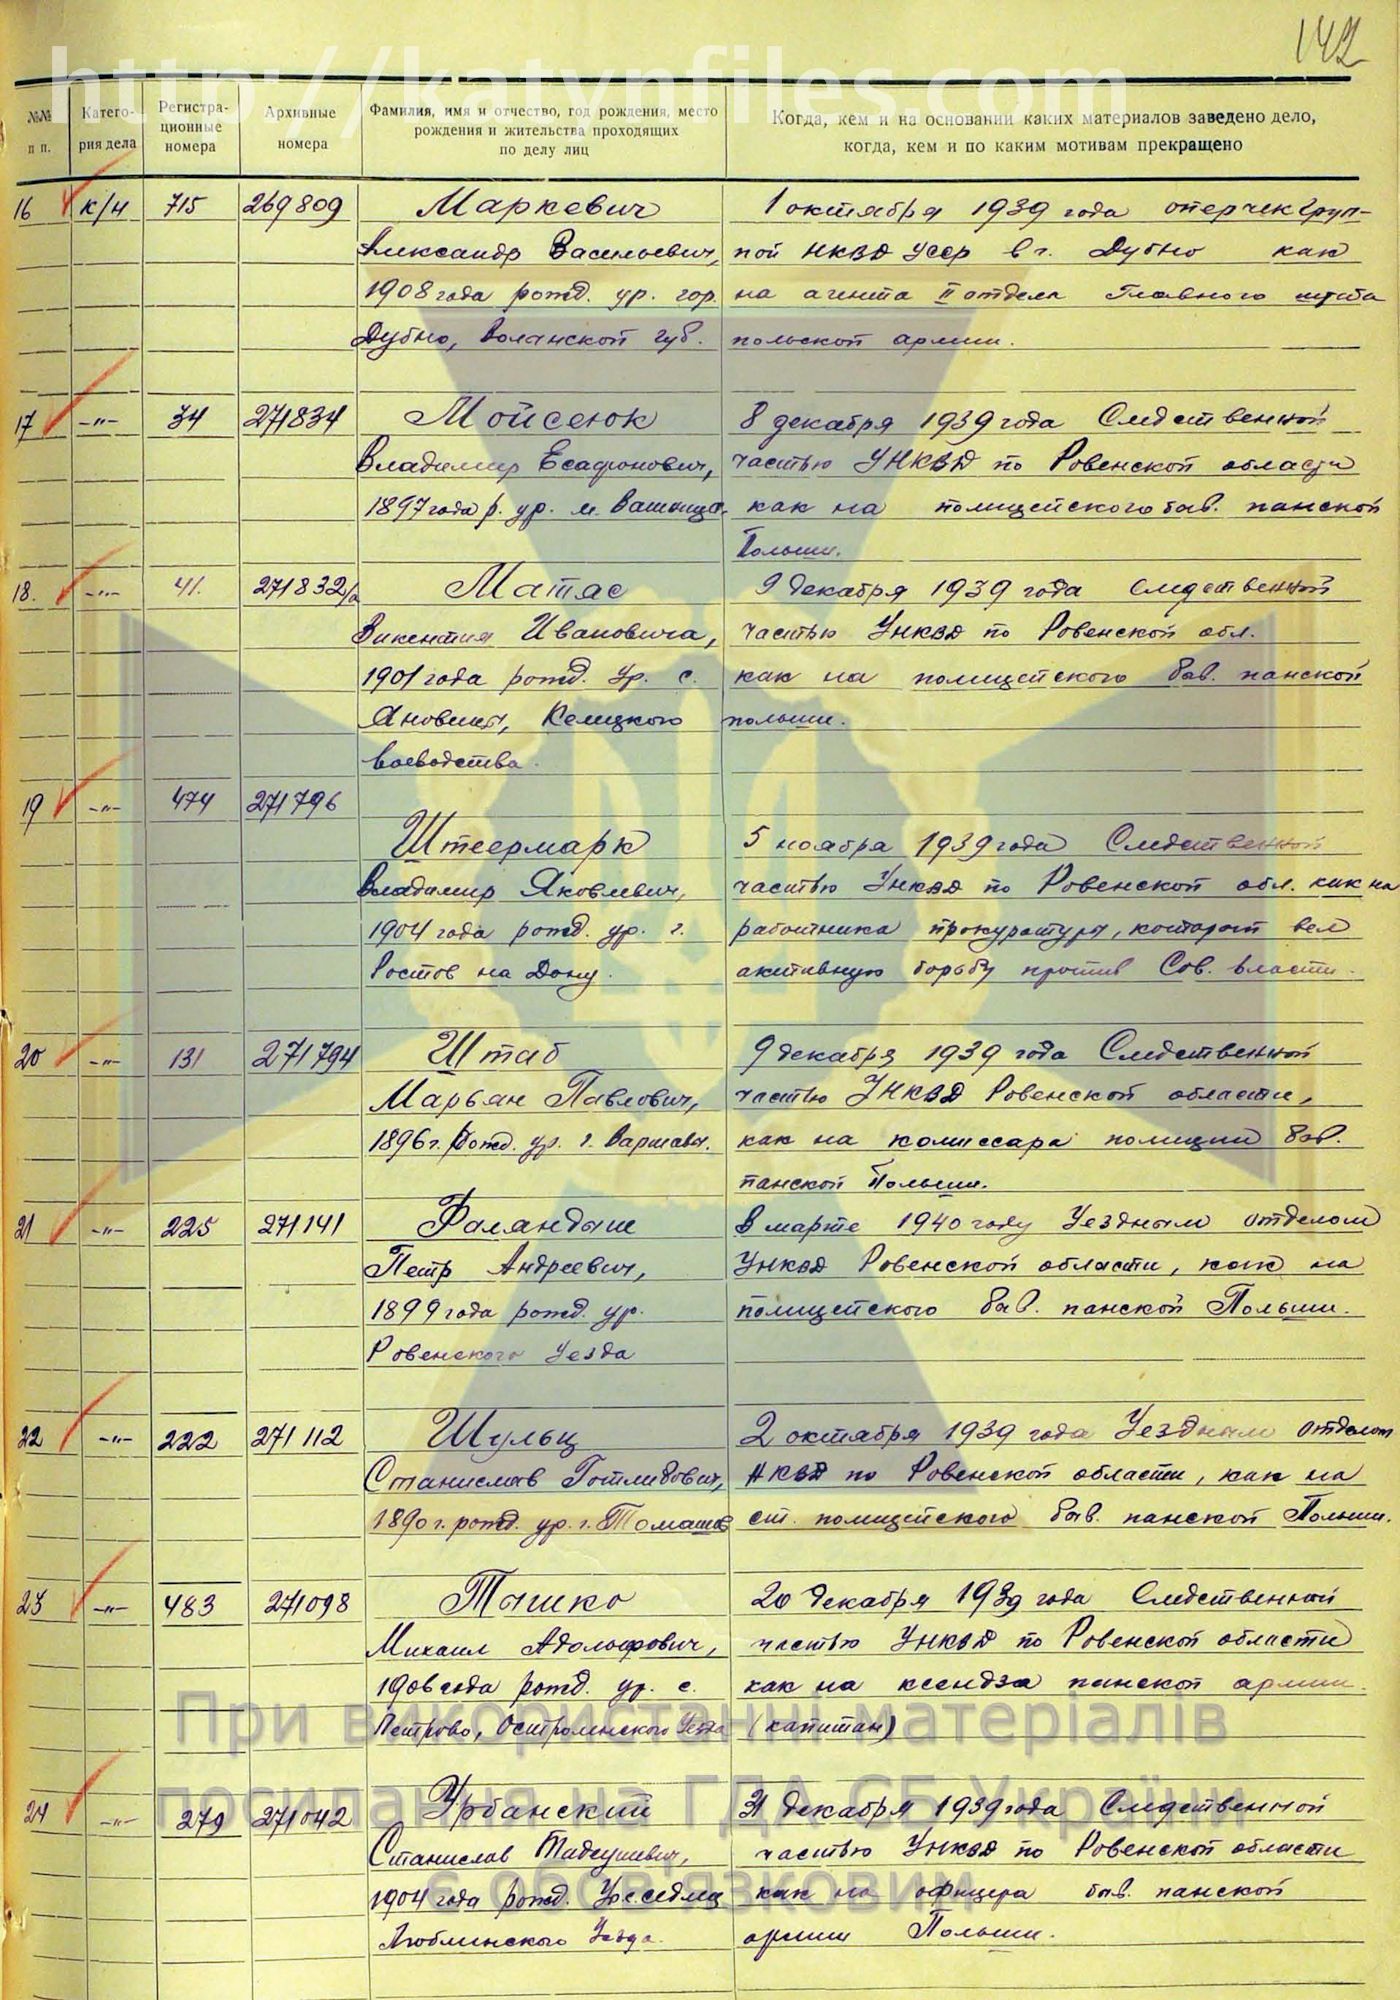 142
http://katynfiles.com
№№ п п.
Катего-
рия дела
Регистра-
ционные
номера
Архивные
номера
Фамилия, имя и отчество, год рождения, место
рождения и жительства проходящих
по делу лиц
Когда, кем и на основании каких материалов заведено дело,
когда, кем и по каким мотивам прекращено
16 к/н 715 269809 Маркевич 1 октября 1939 года оперчекгруп-
Александр Васильевич, пой НКВД УССР в г. Дубно как
1908 года рожд. ур. гор. на агента II отдела Главного штаба
Дубно, Волынской губ. польской армии.
17 -"- 34 271834 Мойсеюк 8 декабря 1939 года Следственной
Владимир Есафонович, частью УНКВД по Ровенской области
1897 года р. ур. м. как на полицейского быв. панской
Польши.
18. -"- 41. 271832/2 Матяс 9 декабря 1939 года Следственной
Викентия Ивановича, частью УНКВД по Ровенской обл.
1901 года рожд. ур. с. как на полицейского быв. панской
Келецкого польши.
воеводства.
19 -"- 474 271796
Штеермарк 5 ноября 1939 года Следственной
Владимир Яковлевич, частью УНКВД по Ровенской обл. как на
1904 года рожд. ур. г. работника прокуратуры, который вел
Ростов на Дону. активную борьбу против Сов. власти.
20 -"- 131 271794 Штаб 9 декабря 1939 года Следственной
Марьян Павлович, частью УНКВД Ровенской области,
1896 г. рожд. ур. г. Варшавы. как на комиссара полиции быв.
панской Польши.
21 -"- 225 271141 Фаландыш В марте 1940 году Уездным отделом
Петр Андреевич, УНКВД Ровенской области, как на
1899 года рожд. ур. полицейского быв. панской Польши.
Ровенского уезда
22 -"- 222 271112 Шульц 2 октября 1939 года Уездным отделом
Станислав Готлибович, НКВД по Ровенской области, как на
1890 г. рожд. ур. г. Томашов ст. полицейского быв. панской Польши.
23 -"- 483 271098 Тышко 20 декабря 1939 года Следственной
Михаил Адольфович, частью УНКВД по Ровенской области
1906 года рожд. ур. с. как на ксендза панской армии.
Петрово, Остроленского уезда (капитан)
24 -"- 279 271042 Урбанский 31 декабря 1939 года Следственной
Станислав Тадеушевич, частью УНКВД по Ровенской области
1904 года рожд. ур. как на офицера быв. панской
Люблинского уезда. армии Польши.
При використанні матеріалів
посилання на ГДА СБ України
є обов'язковим